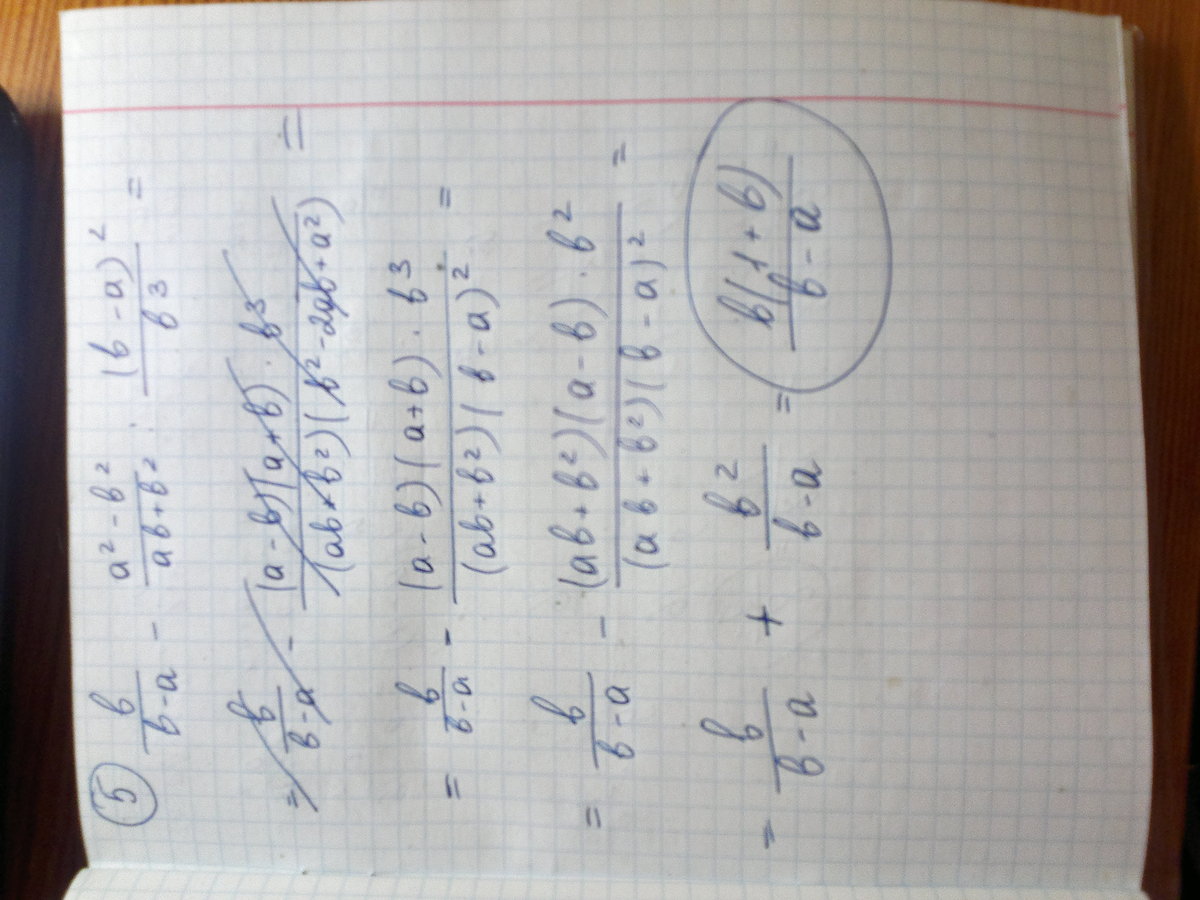 ⑤ b/(b-a) - (a²-b²)/(ab+b²) : (b-a)²/b³ =
= b/(b-a) - (a-b)(a+b)·b³/(ab+b²)(b²-2ab+a²) =
= b/(b-a) - (a-b)(a+b)·b³/(ab+b²)(b-a)² =
= b/(b-a) - (ab+b²)(a-b)·b²/(ab+b²)(b-a)² =
= b/(b-a) + b²/(b-a) = b(1+b)/(b-a)